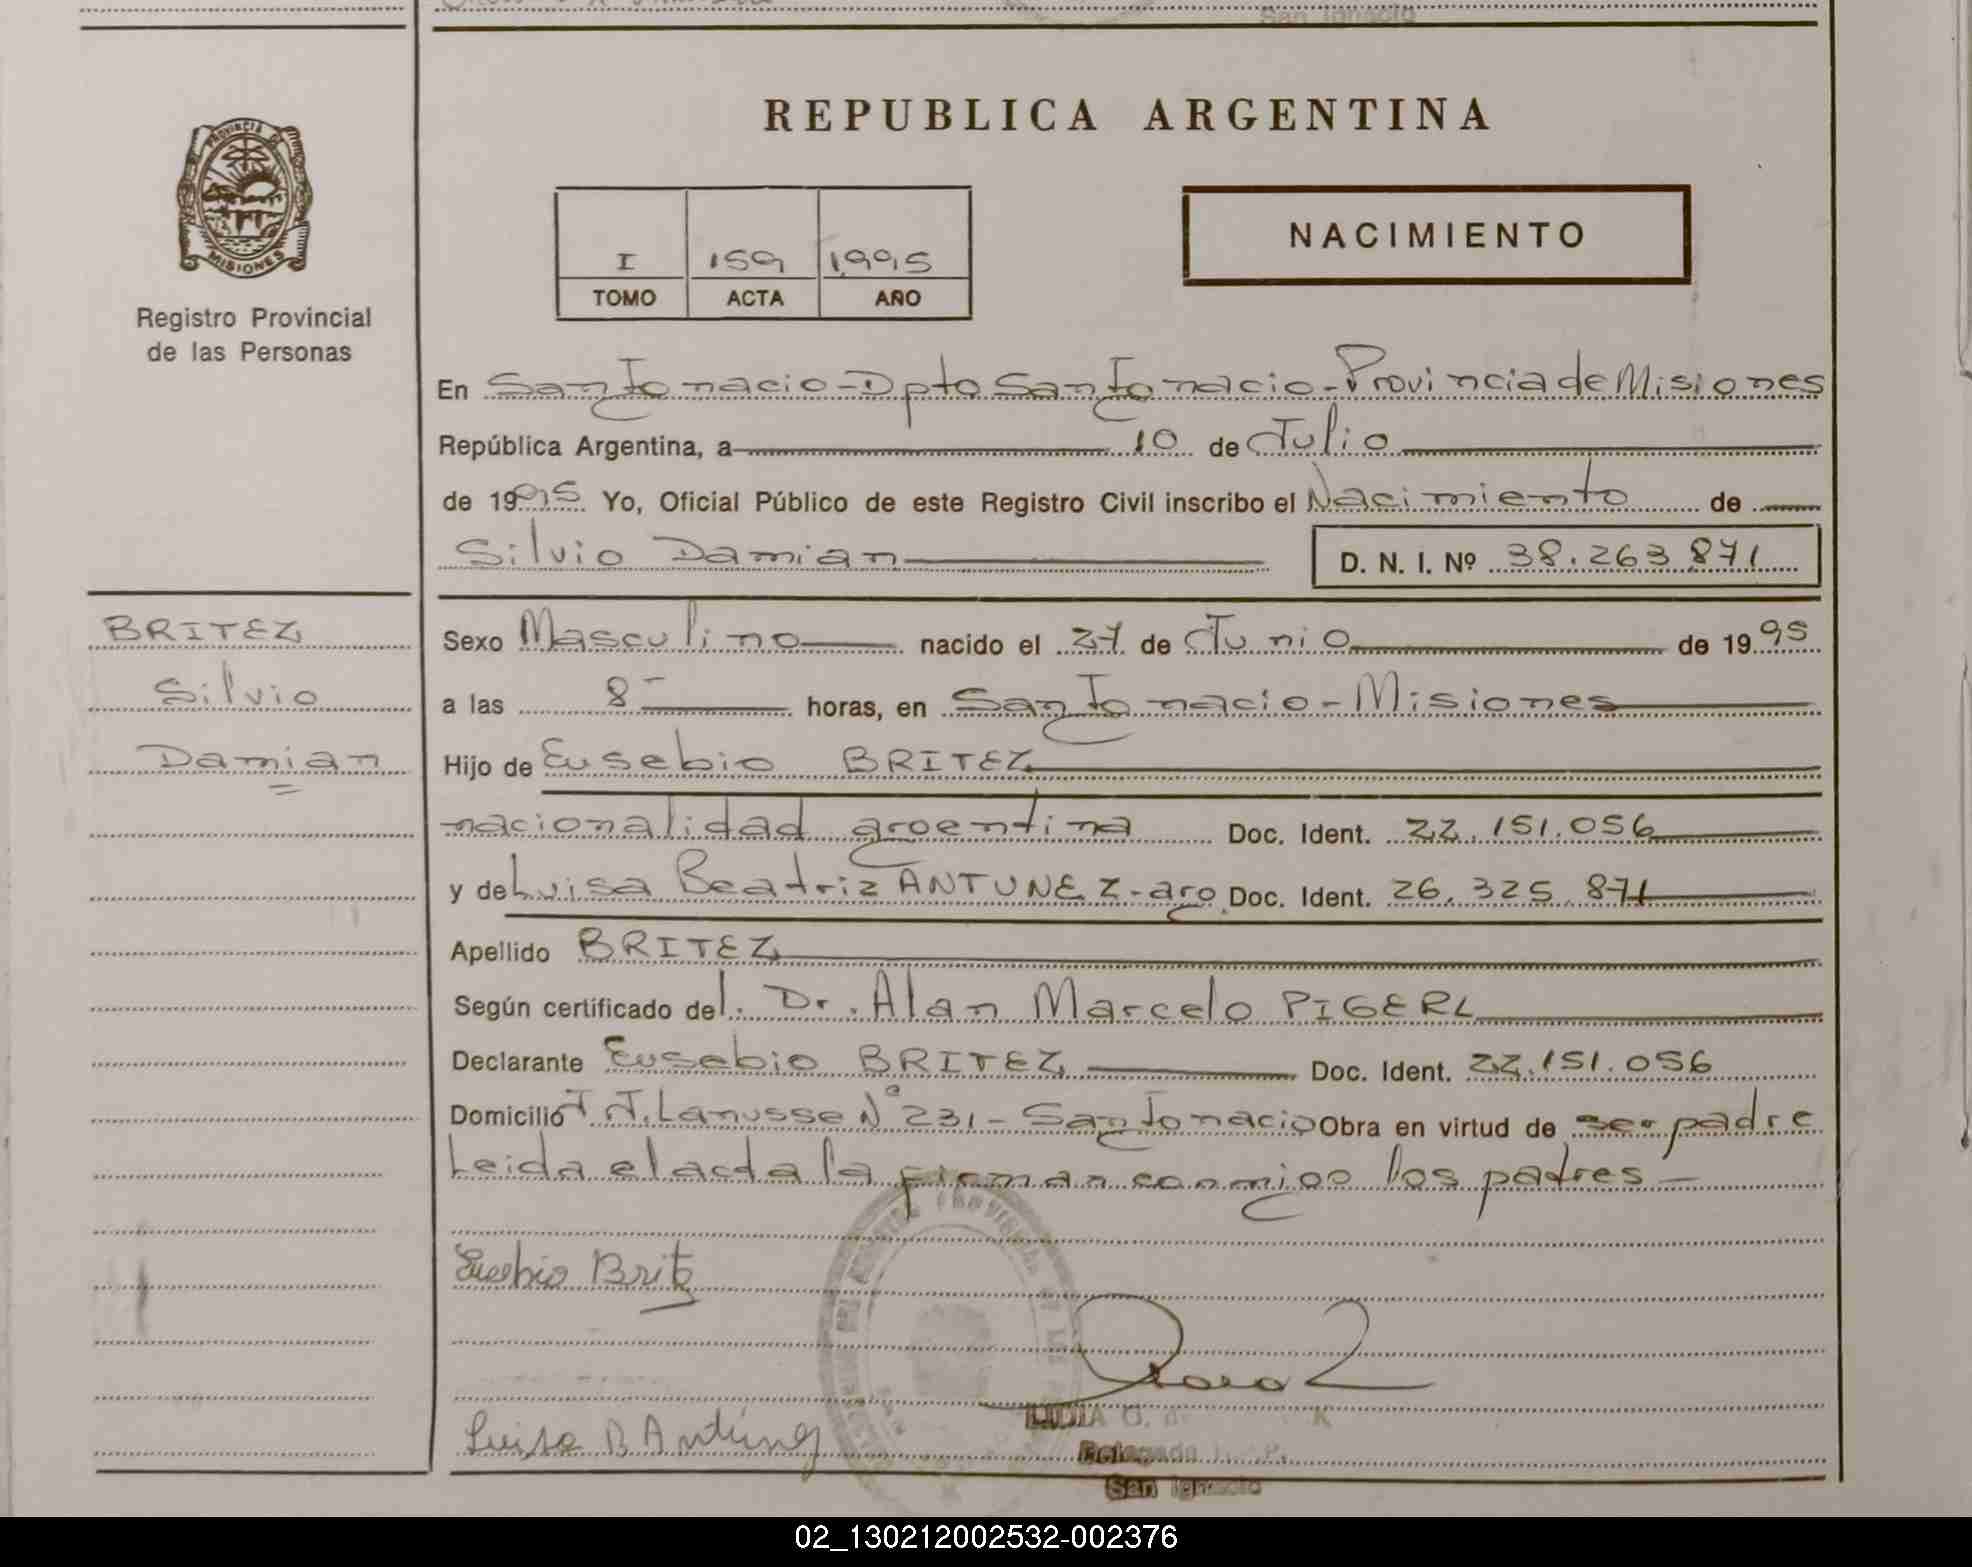 San Ignacio
REPUBLICA ARGENTINA
PROVINCIA DE
MISIONES
Registro Provincial
de las Personas
I 159 1995
TOMO ACTA AÑO
NACIMIENTO
En San Ignacio - Dpto San Ignacio - Provincia de Misiones
República Argentina, a 10 de Julio
de 1995 Yo, Oficial Público de este Registro Civil inscribo el Nacimiento de
Silvio Damian D. N. I. Nº 38.263.871
BRITEZ
Silvio
Damian
Sexo Masculino nacido el 27 de Junio de 1995
a las 8 horas, en San Ignacio - Misiones
Hijo de Eusebio BRITEZ
nacionalidad argentina Doc. Ident. 22.151.056
y de Luisa Beatriz ANTUNEZ - arg. Doc. Ident. 26.325.871
Apellido BRITEZ
Según certificado del. Dr. Alan Marcelo PIGERL
Declarante Eusebio BRITEZ Doc. Ident. 22.151.056
Domicilio J. J. Lanusse Nº 231 - San Ignacio Obra en virtud de ser padre
Leida el acta la firman conmigo los padres -
Eusebio Britez
LIDIA G. de
Luisa B Antúnez
Delegada
San Ignacio
02_130212002532-002376